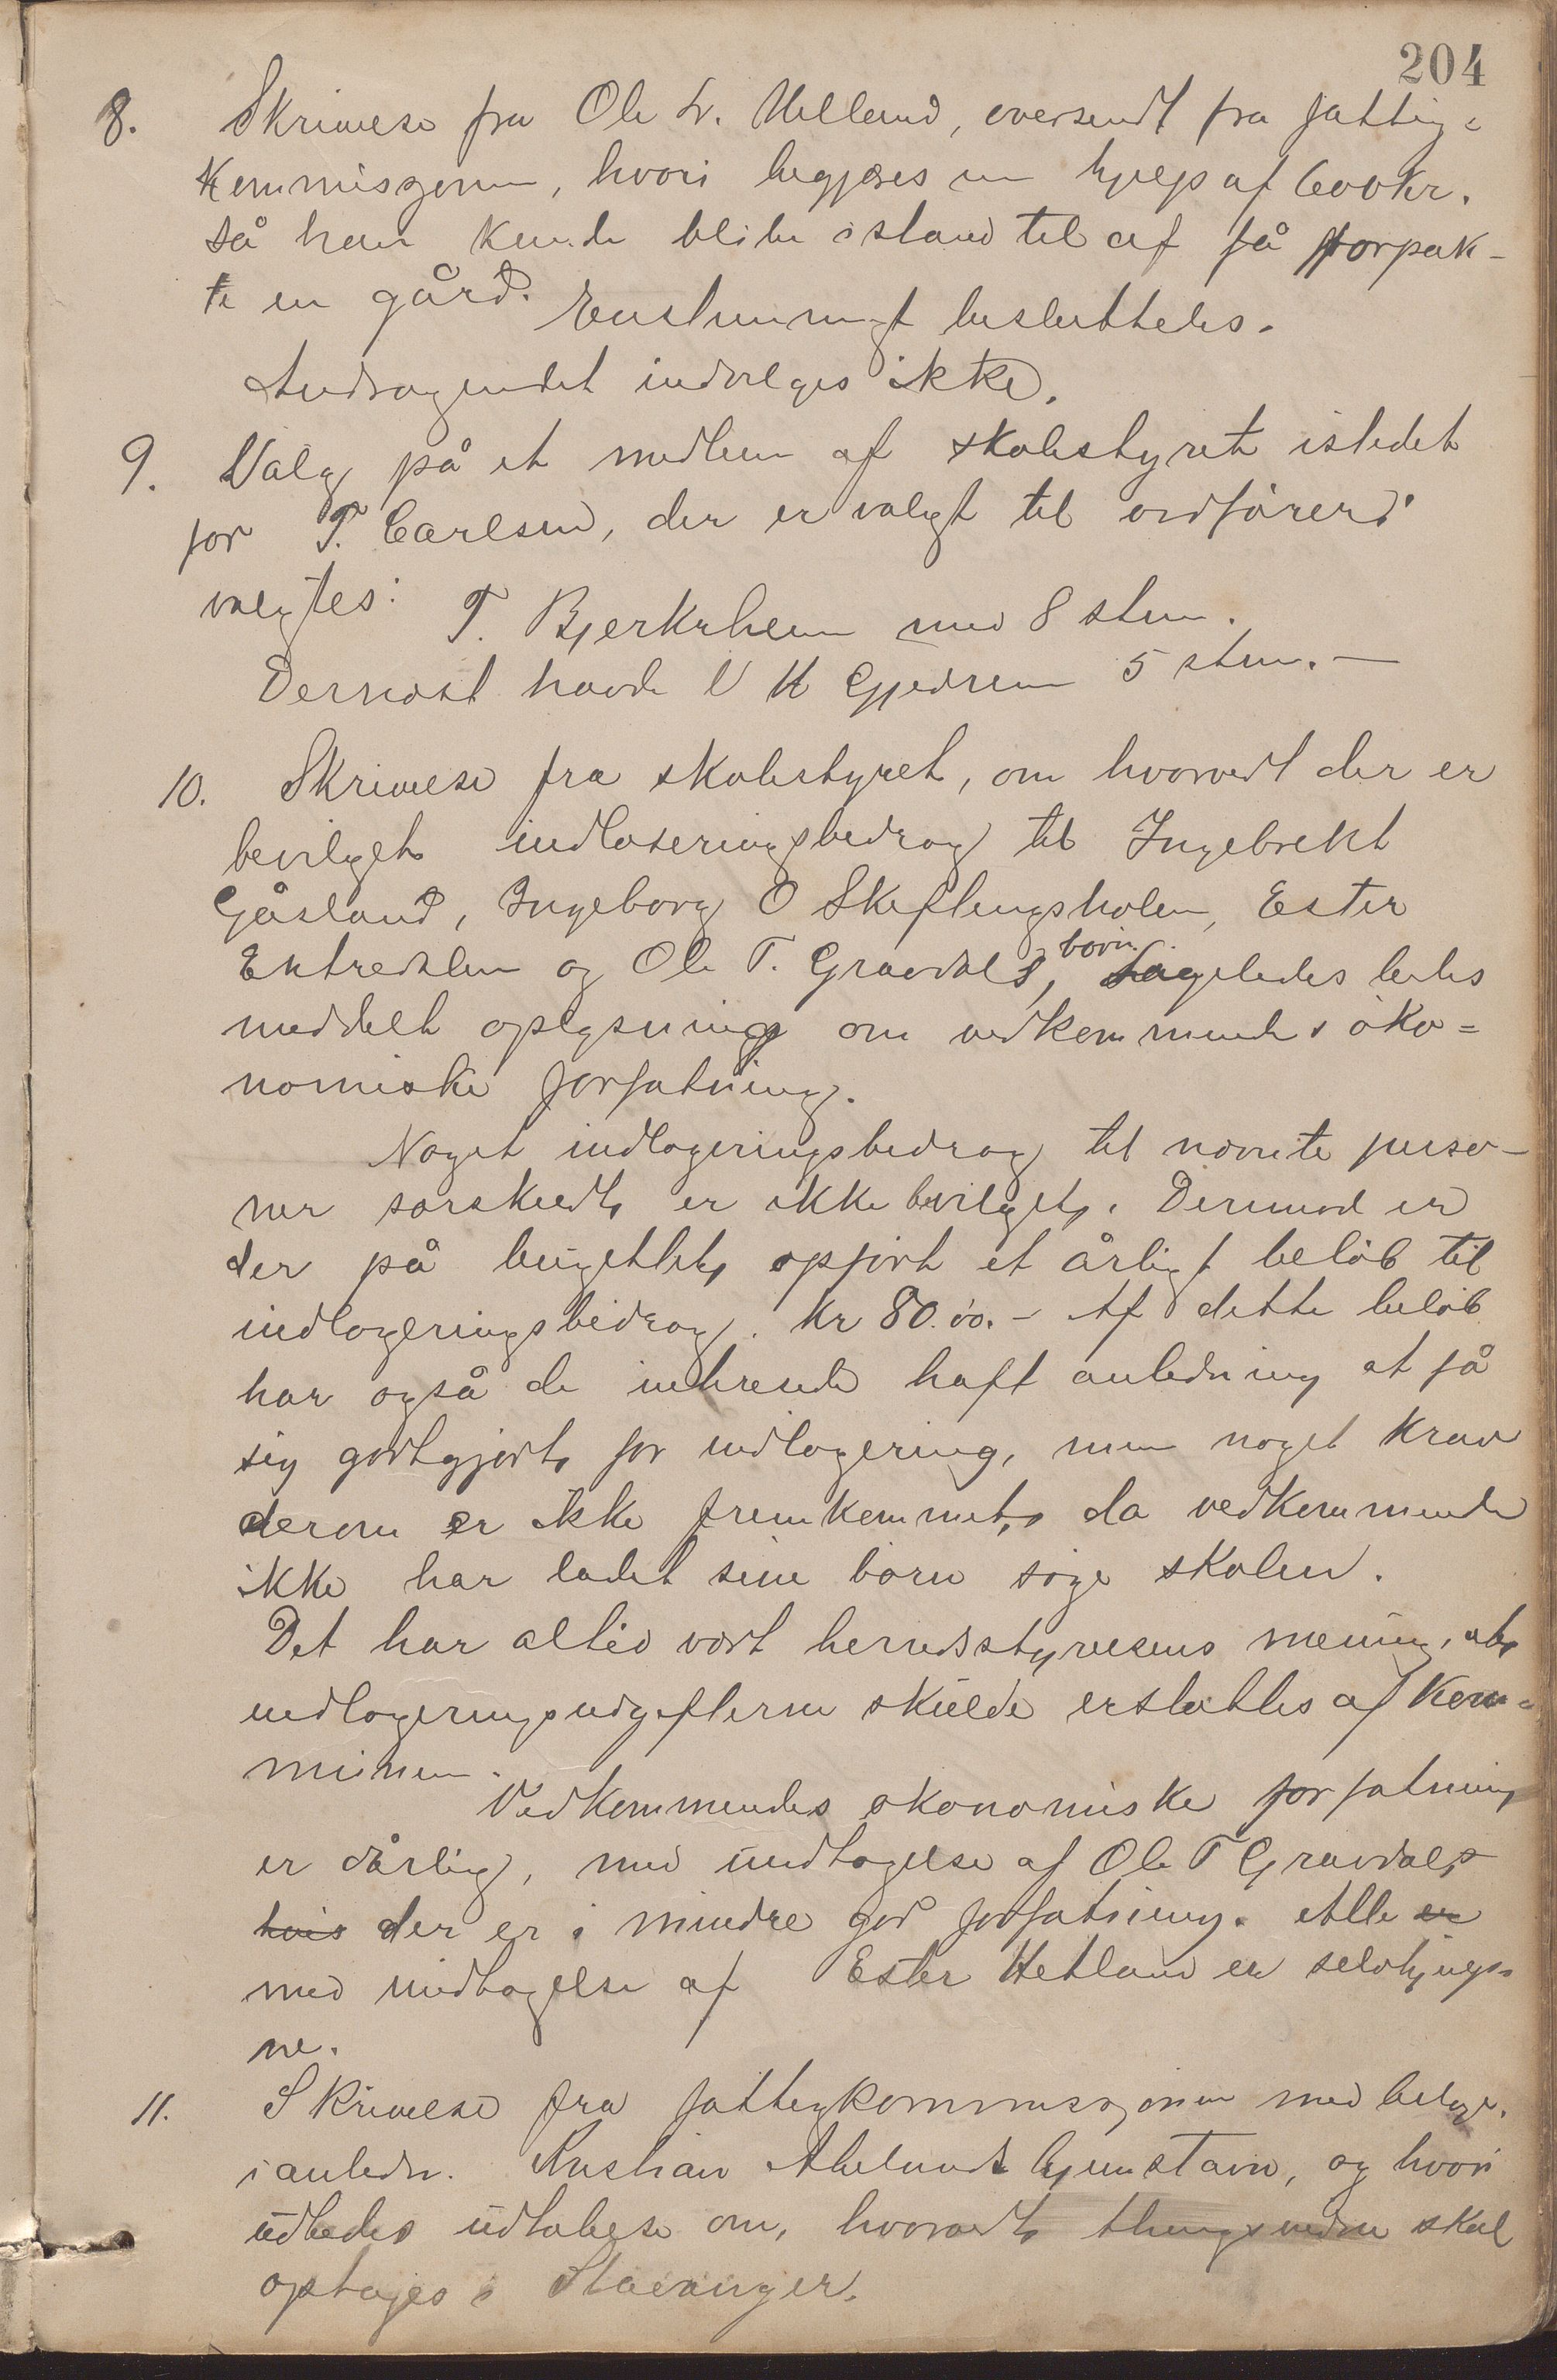 204
8. Skrivelse fra Ole L. Helland, oversendt fra fattig-
kommisjonen, hvori begjæres en hjelp af 600 kr.
så han kunde blive istand til af få forpak-
te en gård. Enstemmigt besluttedes.
Andragendet indvilges ikke.
9. Valg på et medlem af skolestyret istedet
for T. Carlsen, der er valgt til ordfører:
valgtes: T. Bjerkrheim med 8 stem.
Dernæst havde V H Gjedrem 5 stem. —
10. Skrivelse fra skolestyret, om hvorvidt der er
bevilget indloseringsbedrag til Ingebrekt
Gåsland, Ingeborg O Skeflengsholen, Ester
Eptredalen og Ole T. Gravdals, börn. Ligeledes bedes
meddelt oplysning om vedkommendes öko=
nomiske forfatning.
Noget indlogeringsbedrag til nævnte perso-
ner særskildt er ikke bevilget. Derimod er
der på bugettet opfört et årligt belöb til
indlogeringsbidrag. kr 80.00. - Af dette belöb
har også de indresede haft anledning at få
sig godtgjort for indlogering, men noget krav
derom er ikke fremkommet, da vedkommende
ikke har ladet sine börn söge skolen.
Det har altid vært herredsstyrelsens mening, at
indlogeringsudgifterne skulde erstattes af kom-
munen.
Vedkommendes økonomiske forfatning
er dårlig, med undtagelse af Ole T Gravdal,
hvis der er i mindre god forfatning. Alle er
med undtagelse af Ester Hetland er selvhjulp-
ne.
11. Skrivelse fra fattigkommissjonen med bilage.
i anledn. Kristian Ahelunds hjemstavn, og hvori
udbedes udtalelse om, hvorvidt thingsvidne skal
optages i Stavanger.